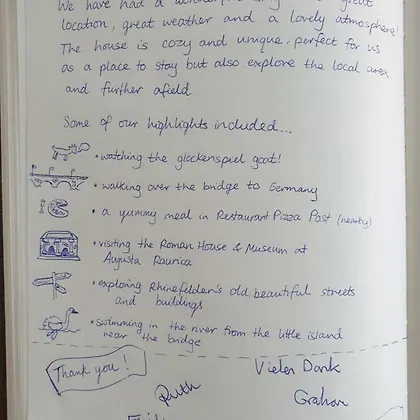 We have had a
great
location, great weather and a lovely atmosphere!
The house is cozy and unique, perfect for us
as a place to stay but also explore the local area
and further afield
Some of our highlights included...
• watching the glockenspiel goat!
• walking over the bridge to Germany
• a yummy meal in Restaurant Pizza Post (nearby)
• visiting the Roman House & Museum at
Augusta Raurica
• exploring Rheinfelden's old, beautiful streets
and buildings
• swimming in the river from the little island
near the bridge
Thank you!
Vielen Dank
Ruth
Graham